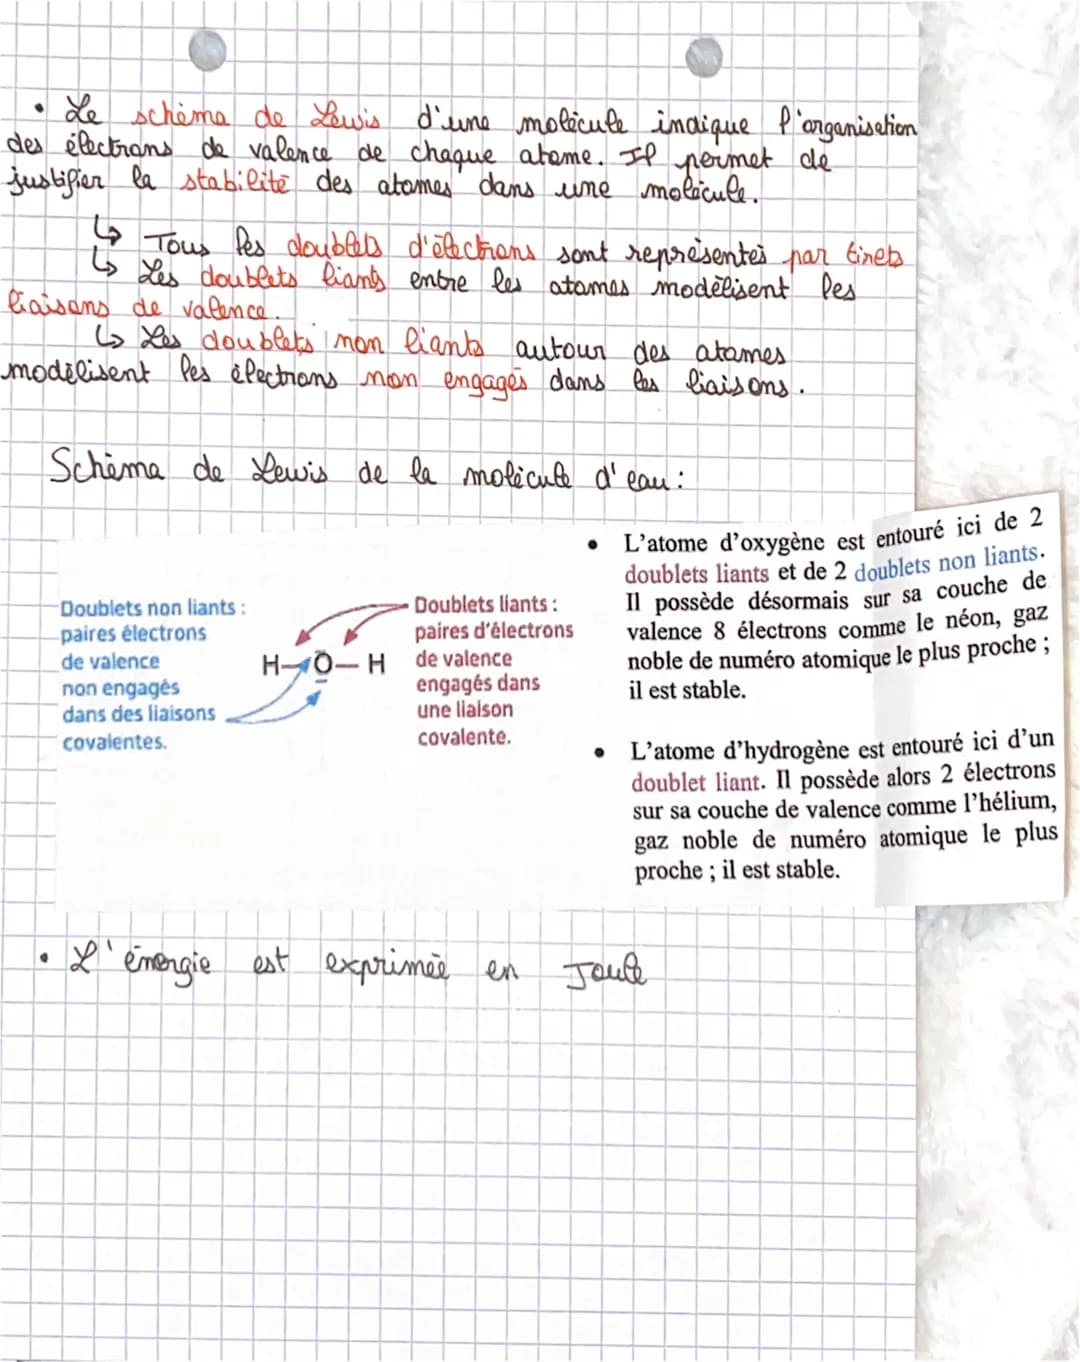 • Le schéma de Lewis d'une molécule indique l'organisation
des électrons de valence de chaque atome. Il permet de
justifier la stabilité des atomes dans une molécule.
↳ Tous les doublets d'électrons sont représentés par tirets
↳ Les doublets liants entre les atomes modélisent les
liaisons de valence.
↳ Les doublets non liants autour des atomes
modélisent les électrons non engagés dans les liaisons.
Schéma de Lewis de la molécule d'eau :
Doublets non liants :
paires électrons
de valence
non engagés
dans des liaisons
covalentes.
H–O–H
Doublets liants :
paires d'électrons
de valence
engagés dans
une liaison
covalente.
• L'atome d'oxygène est entouré ici de 2
doublets liants et de 2 doublets non liants.
Il possède désormais sur sa couche de
valence 8 électrons comme le néon, gaz
noble de numéro atomique le plus proche ;
il est stable.
• L'atome d'hydrogène est entouré ici d'un
doublet liant. Il possède alors 2 électrons
sur sa couche de valence comme l'hélium,
gaz noble de numéro atomique le plus
proche ; il est stable.
• L'énergie est exprimée en Joule